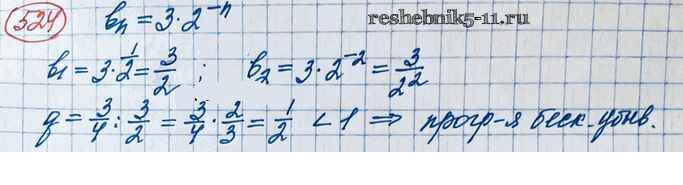 524 bₙ = 3·2⁻ⁿ reshebnik5-11.ru
b₁ = 3·1/2 = 3/2 ; b₂ = 3·2⁻² = 3/2²
q = 3/4 : 3/2 = 3/4 · 2/3 = 1/2 < 1 ⇒ прогр-я беск. убыв.